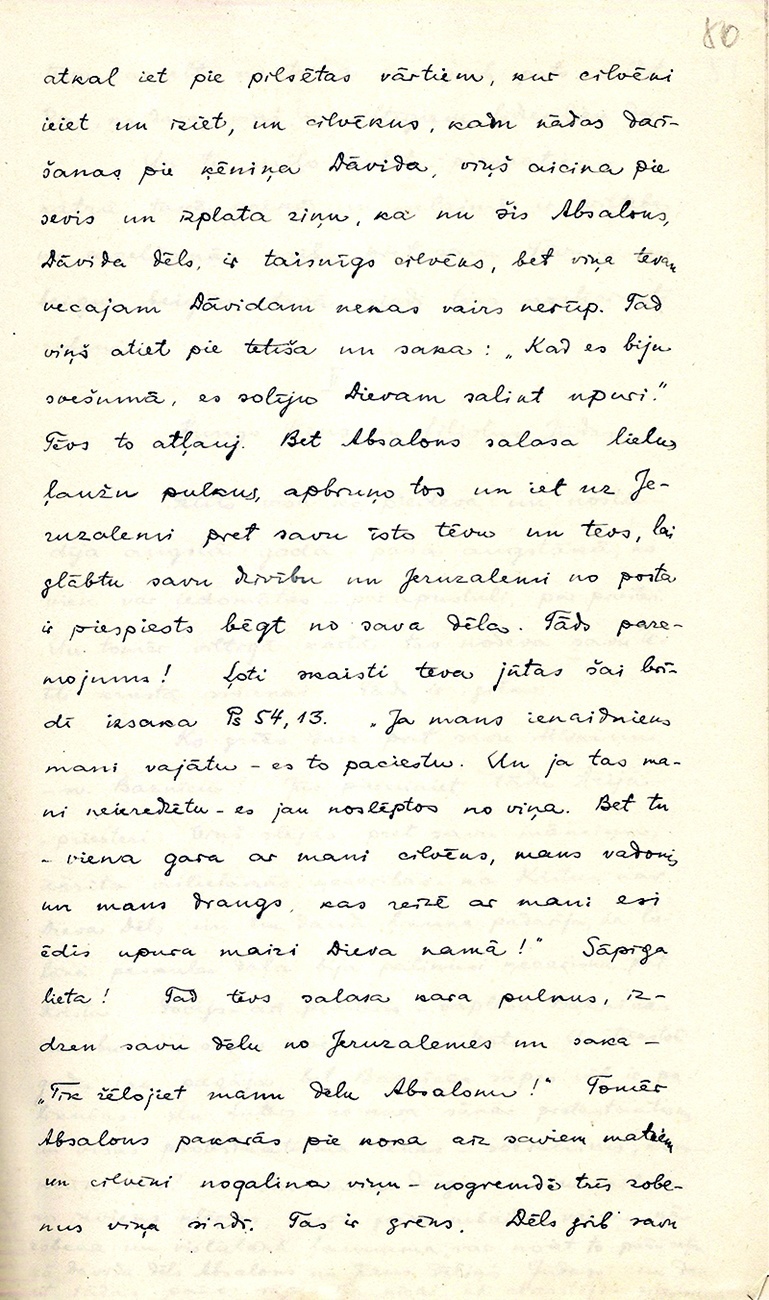 80
atkal iet pie pilsētas vārtiem, kur cilvēki
ieiet un iziet, un cilvēkus, kam kādas darī-
šanas pie ķēniņa Dāvida, viņš aicina pie
sevis un izplata ziņu, ka nu šis Absalons,
Dāvida dēls, ir taisnīgs cilvēks, bet viņa tēvam
vecajam Dāvidam nekas vairs nerūp. Tad
viņš atiet pie tētiša un saka: „Kad es biju
svešumā, es solīju Dievam salikt upuri."
Tēvs to atļauj. Bet Absalons salasa lielus
ļaužu pulkus, apbruņo tos un iet uz Je-
ruzalemi pret savu īsto tēvu un tēvs, lai
glābtu savu dzīvību un Jeruzalemi no posta
ir piespiests bēgt no sava dēla. Tāds paze-
mojums! Ļoti skaisti tēva jūtas šai brī-
dī izsaka Ps 54,13. „Ja mans ienaidnieks
mani vajātu – es to paciestu. Un ja tas ma-
ni neieredzētu – es jau noslēptos no viņa. Bet tu
– viena gara ar mani cilvēks, mans vadonis
un mans draugs, kas reizē ar mani esi
ēdis upura maizi Dieva namā!" Sāpīga
lieta! Tad tēvs salasa kara pulkus, iz-
dzen savu dēlu no Jeruzalemes un saka –
„Tik žēlojiet manu dēlu Absalomu!" Tomēr
Absalons pakarās pie koka aiz saviem matiem
un cilvēki nogalina viņu – nogremdē trīs zobe-
nus viņa sirdī. Tas ir grēks. Dēls grib savu